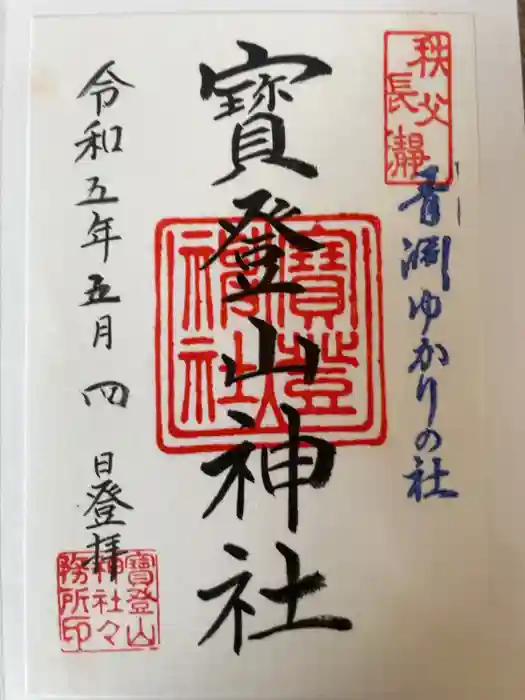 秩父
長瀞
青淵ゆかりの社
寶登山神社
寶登山
神社
令和五年五月四日登拝
寶登山
神社々
務所印